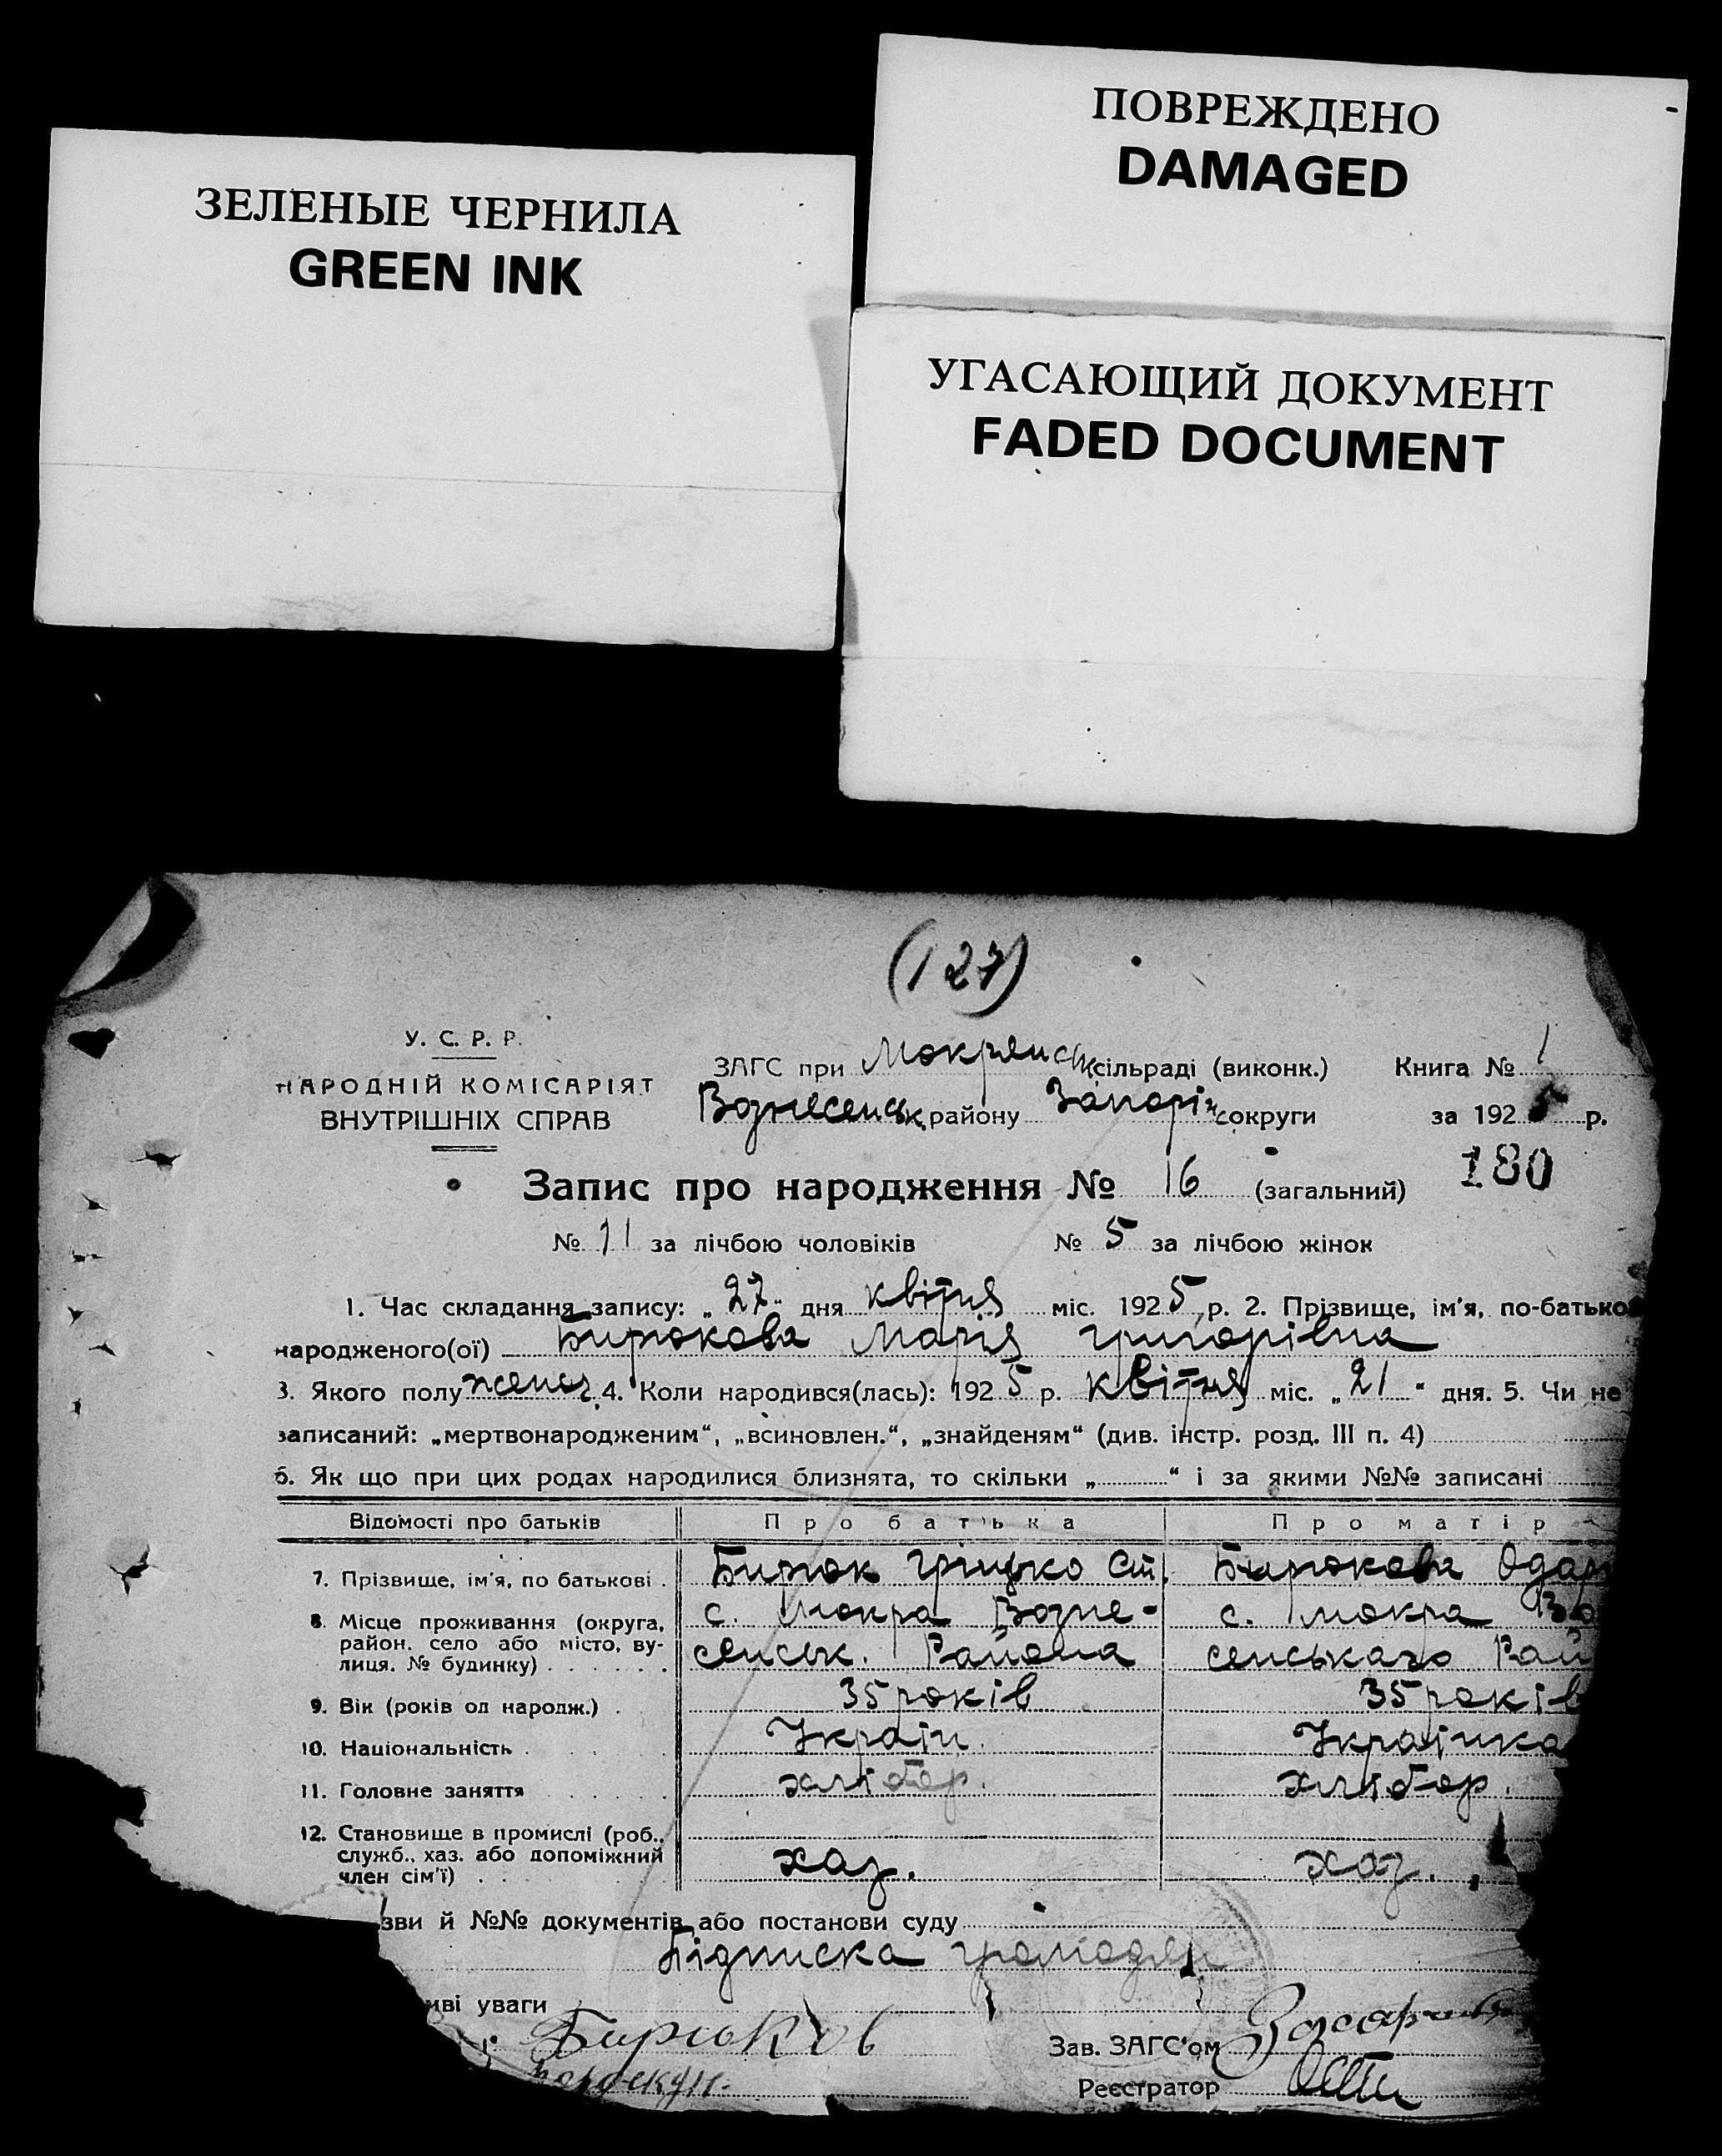 ПОВРЕЖДЕНО
DAMAGED
ЗЕЛЕНЫЕ ЧЕРНИЛА
GREEN INK
УГАСАЮЩИЙ ДОКУМЕНТ
FADED DOCUMENT
(127)
У. С. Р. Р.
НАРОДНІЙ КОМІСАРІЯТ
ВНУТРІШНІХ СПРАВ
ЗАГС при Мокрянськ сільраді (виконк.) Книга № 1
Вознесенськ району Запоріж округи за 1925 р.
180
Запис про народження № 16 (загальний)
№ 11 за лічбою чоловіків № 5 за лічбою жінок
1. Час складання запису: „27“ дня квітня міс. 1925 р. 2. Прізвище, ім'я, по-батьков
народженого(ої) Бирюкова Марія Григорівна
3. Якого полу женоч. 4. Коли народився(лась): 1925 р. квітня міс. „21“ дня. 5. Чи не
записаний: „мертвонародженим“, „всиновлен.“, „знайденям“ (див. інстр. розд. III п. 4)
6. Як що при цих родах народилися близнята, то скільки „ “ і за якими №№ записані
Відомості про батьків Про батька Про матір
7. Прізвище, ім'я, по батькові . Бирюк Грицько Ст. Бирюкова Одар
8. Місце проживання (округа, район, село або місто, вулиця, № будинку) с. Мокра Вознесенськ. Района с. Мокра Вознесенського Рай
9. Вік (років од народж.) . 35 років 35 років
10. Національність . Україн. Українка
11. Головне заняття хлібор. хлібор.
12. Становище в промислі (роб., служб., хаз. або допоміжний член сім'ї) . хаз. хаз.
зви й №№ документів або постанови суду
Підписка громадян
иві уваги
Бирюков
Зав. ЗАГС'ом
Реєстратор